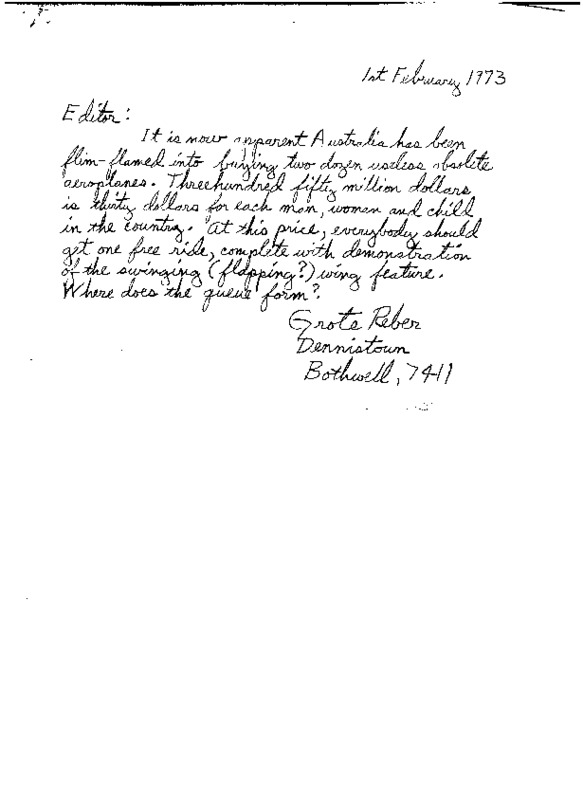 1st February 1973
Editor:
It is now apparent Australia has been
flim-flamed into buying two dozen useless obsolete
aeroplanes. Threehundred fifty million dollars
is thirty dollars for each man, woman and child
in the country. At this price, everybody should
get one free ride, complete with demonstration
of the swinging (flapping?) wing feature.
Where does the queue form?
Grote Reber
Dennistoun
Bothwell, 7411